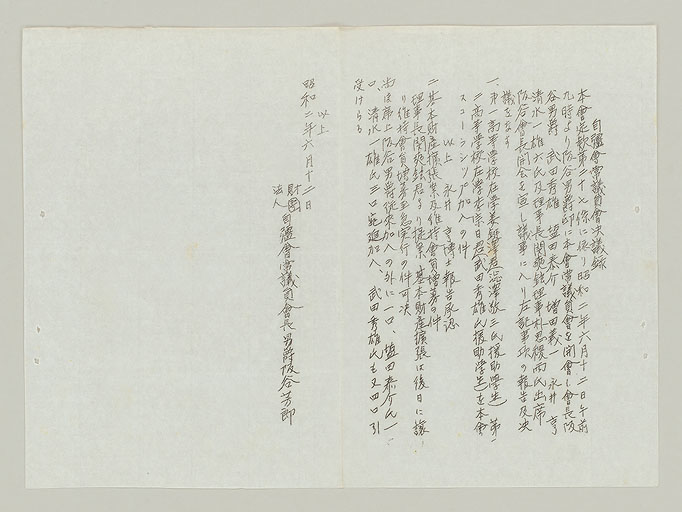 自彊會常議員會決議録
本會定款第二十七條に依り昭和二年六月十二日午前
九時より阪谷男爵邸に本會常議員會を開會し會長阪
谷男爵 武田秀雄 塩田泰介 増田義一 永井亨
清水一雄六氏及理事長関 理事朴思稷両氏出席
阪谷會長開会を宣し議事に入り左記事項の報告及決
議をなす
一、第一高等学校在学 氏援助學生 第一
二高等学校在学李宗日君武田秀雄氏援助學生を本會
スコーラシップ加入の件
以上 永井亨博士報告承認
二、基本財産擴張案及維持會員増募の件
理事長関 君より提案 基本財産擴張は後日に譲
り維持會員増募至急実行の件可決
尚後席上阪谷男爵従来加入の外に一口、塩田泰介氏一
口、清水一雄氏三口宛追加入、武田秀雄氏も又四口引
受けらる
以上
昭和二年六月十二日
財団
法人 自彊會常議員會長男爵阪谷芳郎